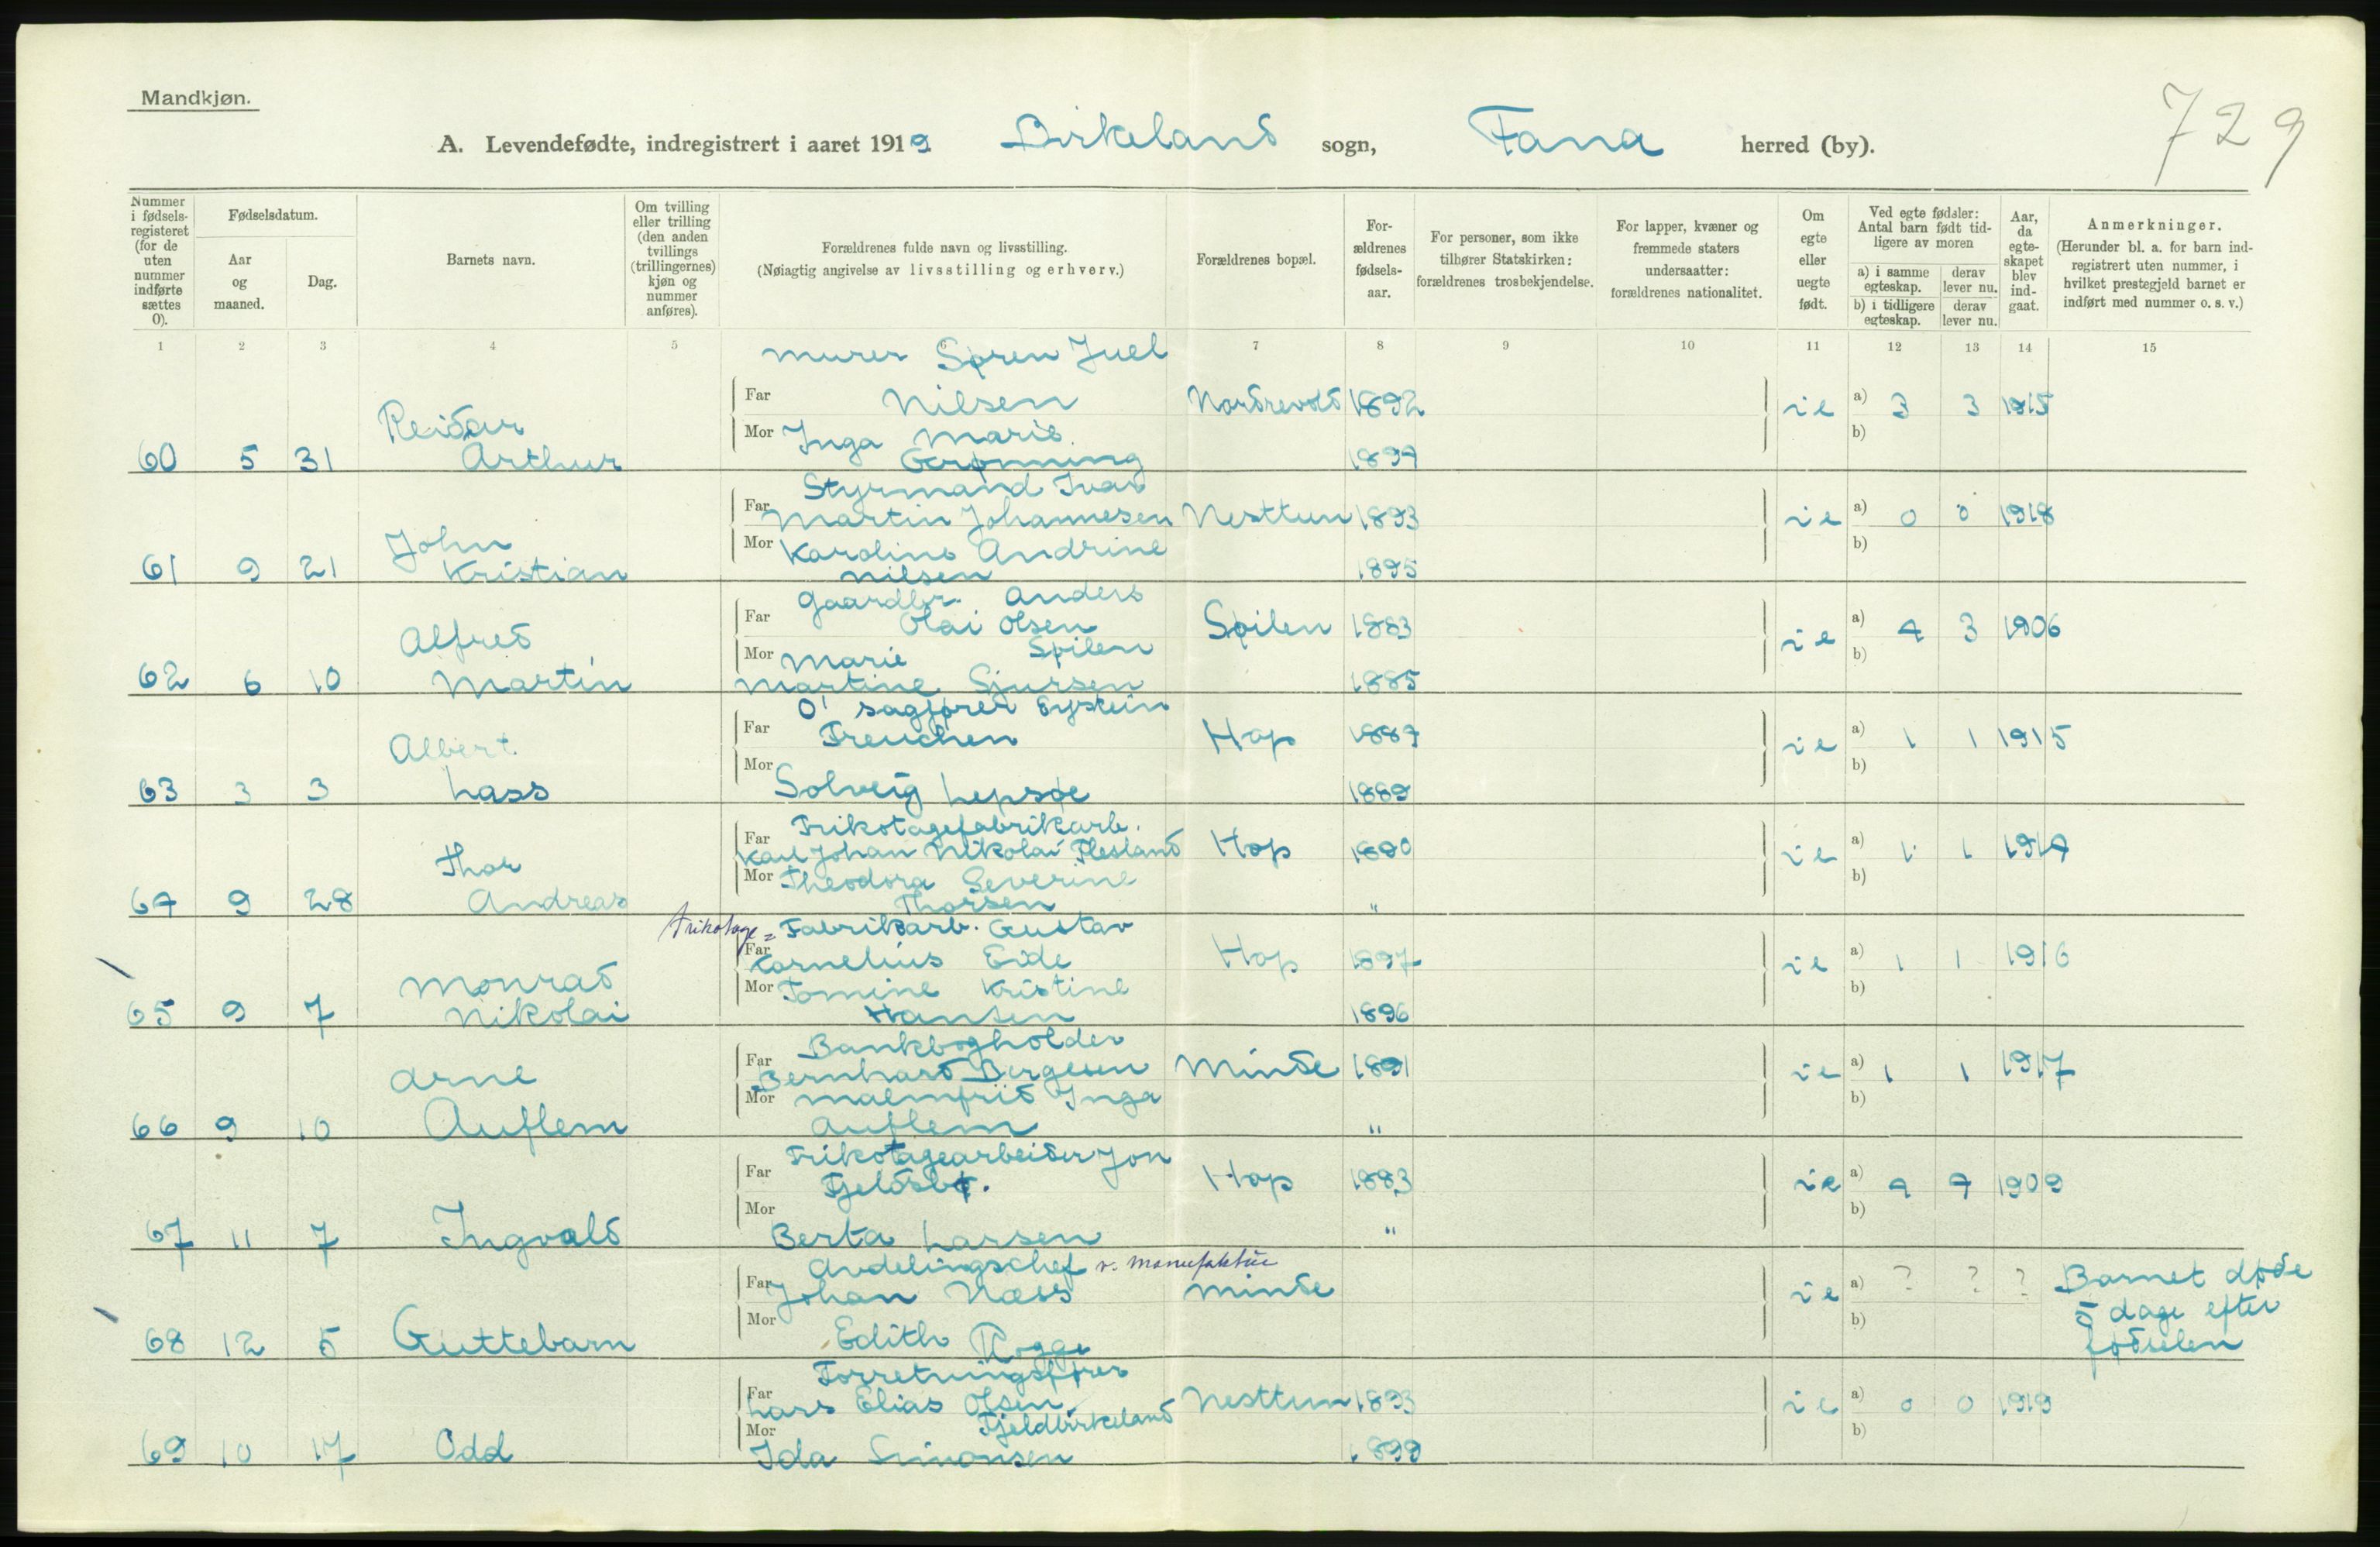 Mandkjøn.
729
A. Levendefødte, indregistrert i aaret 1919 Birkeland sogn, Fana herred (by).
Nummer i fødsels-registeret (for de uten nummer indførte sættes 0).
Fødselsdatum.
Aar og maaned.
Dag.
Barnets navn.
Om tvilling eller trilling (den anden tvillings (trillingernes) kjøn og nummer anføres).
Forældrenes fulde navn og livsstilling.
(Nøiagtig angivelse av livsstilling og erhverv.)
Forældrenes bopæl.
For-ældrenes fødsels-aar.
For personer, som ikke tilhører Statskirken: forældrenes trosbekjendelse.
For lapper, kvæner og fremmede staters undersaatter: forældrenes nationalitet.
Om egte eller uegte født.
Ved egte fødsler: Antal barn født tid-ligere av moren
a) i samme egteskap.
derav lever nu.
b) i tidligere egteskap.
derav lever nu.
Aar, da egte-skapet blev ind-gaat.
Anmerkninger.
(Herunder bl. a. for barn ind-registrert uten nummer, i hvilket prestegjeld barnet er indført med nummer o. s. v.)
1 2 3 4 5 6 7 8 9 10 11 12 13 14 15
murer Søren Juel
Far Nilsen Nordrevold 1892 ie a) 3 3 1915
Reidar
Mor Inga Marie b)
60 5 31 Arthur Grønning 1897
Styrmand Ivar
Far Martin Johannesen Nesttun 1893 ie a) 0 0 1918
John
Mor Karoline Andrine b)
61 9 21 Kristian Nilsen 1895
Gaardbr. Anders
Far Olai Olsen Spilen 1883 ie a) 4 3 1906
Alfred
Mor Marie Spilen b)
62 6 10 Martin Martine Sjursen 1885
O' sagfører Eystein
Far Freuchen Hop 1887 ie a) 1 1 1915
Albert
Mor b)
63 3 3 Lass Solveig Lepsøe 1889
Trikotagefabrikarb.
Far Karl Johan Nikolai Flesland Hop 1890 ie a) 1 1 1914
Thor
Mor Theodora Severine b)
64 9 28 Andreas Thorsen "
trikotage= Fabrikarb. Gustav
Far Kornelius Eide Hop 1897 ie a) 1 1 1916
Monrad
Mor Tomine Kristine b)
65 9 7 Nikolai Hansen 1896
Bankbogholder
Far Bernhard Bergesen Minde 1891 ie a) 1 1 1917
Arne
Mor Malmfrid Inga b)
66 9 10 Auflem Auflem "
Trikotagearbeider Jon
Far Hop 1883 ie a) 4 4 1909
Mor b)
67 11 7 Ingvald Berta Larsen "
Avdelingschef v. Manufaktur
Far Johan Næss Minde ie a) ? ? ? Barnet døde
Mor b) 5 dage efter
68 12 5 Guttebarn Edith Rogge fødselen
Forretningsfører
Far Lars Elias Olsen Nesttun 1893 ie a) 0 0 1919
Fjeldbirkeland
Mor b)
69 10 17 Odd Ida Simonsen 1899